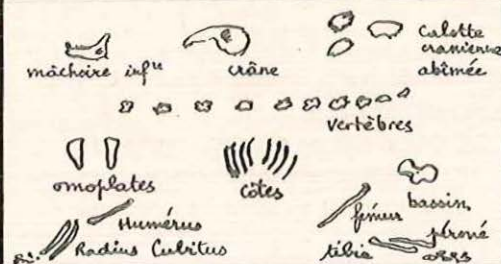 mâchoire infre
crâne
Calotte
cranienne
abîmée
vertèbres
omoplates
côtes
bassin
Humérus
Radius Cubitus
fémur
péroné
tibia